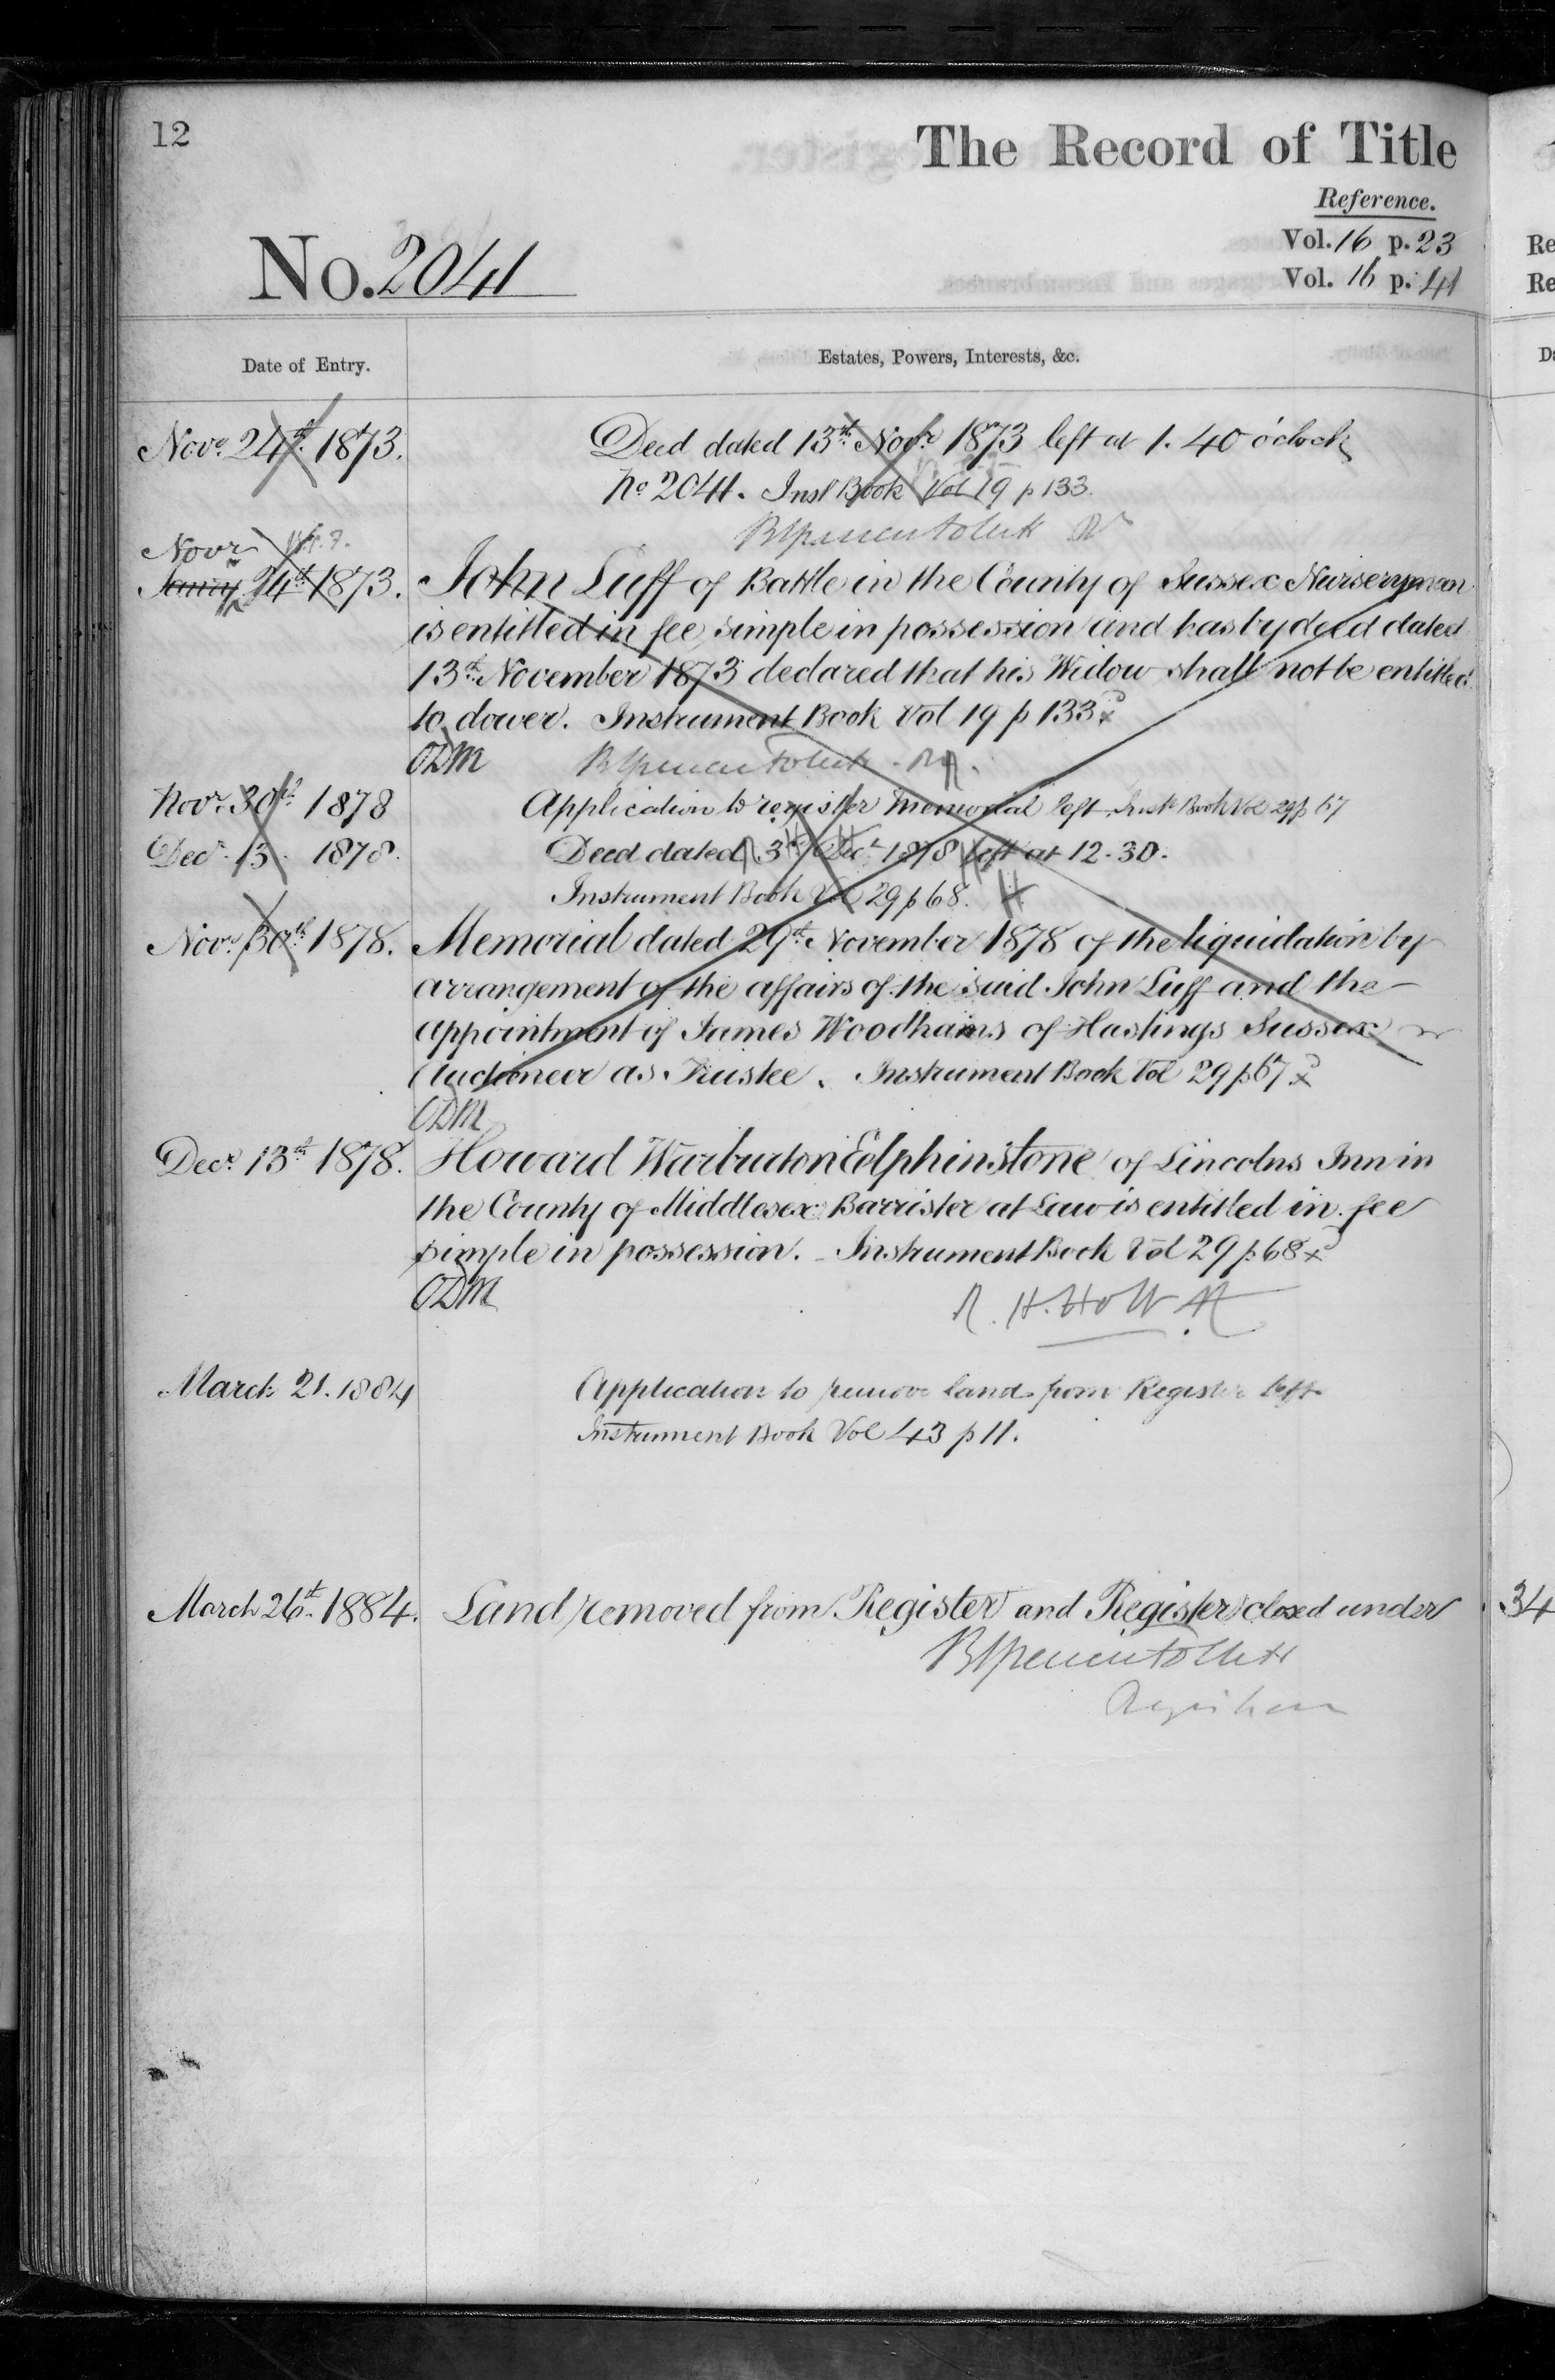 12
The Record of Title
Reference.
Vol. 16 p. 23
No. 2041
Vol. 16 p. 41
Date of Entry.
Estates, Powers, Interests, &c.
Novr. 24th. 1873.
Deed dated 13th Novr 1873 left at 1.40 o'clock
No 2041. Inst Book Vol 19 p 133.
Novr
Jany 24th 1873.
John Luff of Battle in the County of Sussex Nurseryman
is entitled in fee simple in possession and has by deed dated
13th November 1873 declared that his Widow shall not be entitled
to dower. Instrument Book Vol 19 p 133
ODM
Novr. 30th 1878
Application to register Memorial left Inst Book Vol 29 p 67
Decr. 13. 1878.
Deed dated 3rd Decr 1878 left at 12-30.
Instrument Book Vol 29 p 68.
Novr. 30th 1878.
Memorial dated 29th November 1878 of the liquidation by
arrangement of the affairs of the said John Luff and the
appointment of James Woodhams of Hastings Sussex
Auctioneer as Trustee. Instrument Book Vol 29 p 67
ODM
Decr. 13th 1878.
Howard Warburton Elphinstone of Lincolns Inn in
the County of Middlesex Barrister at Law is entitled in fee
simple in possession. Instrument Book Vol 29 p 68
ODM
R. H. Holt
March 21. 1884
Application to remove land from Register left
Instrument Book Vol 43 p 11.
March 26th. 1884.
Land removed from Register and Register closed under
34
Registrar